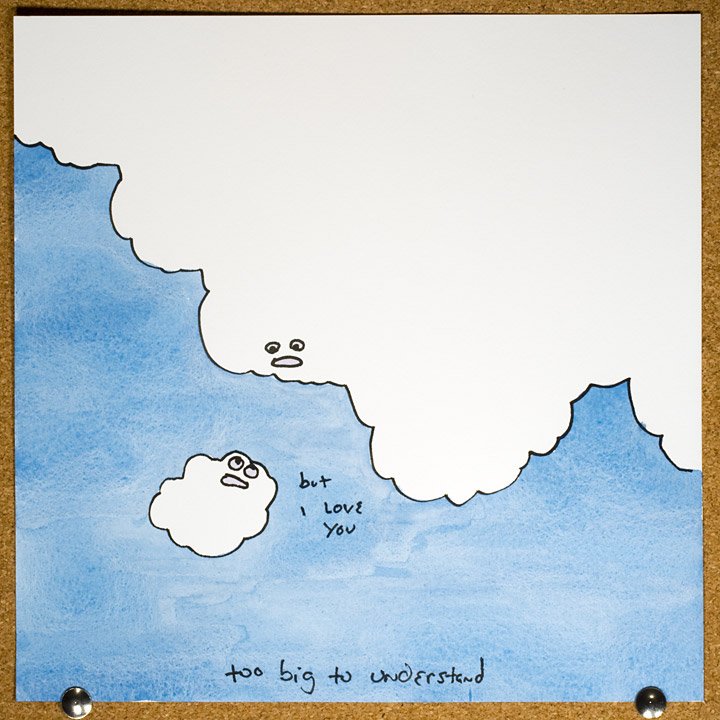 but
i LOVE
YOU
too big to understand